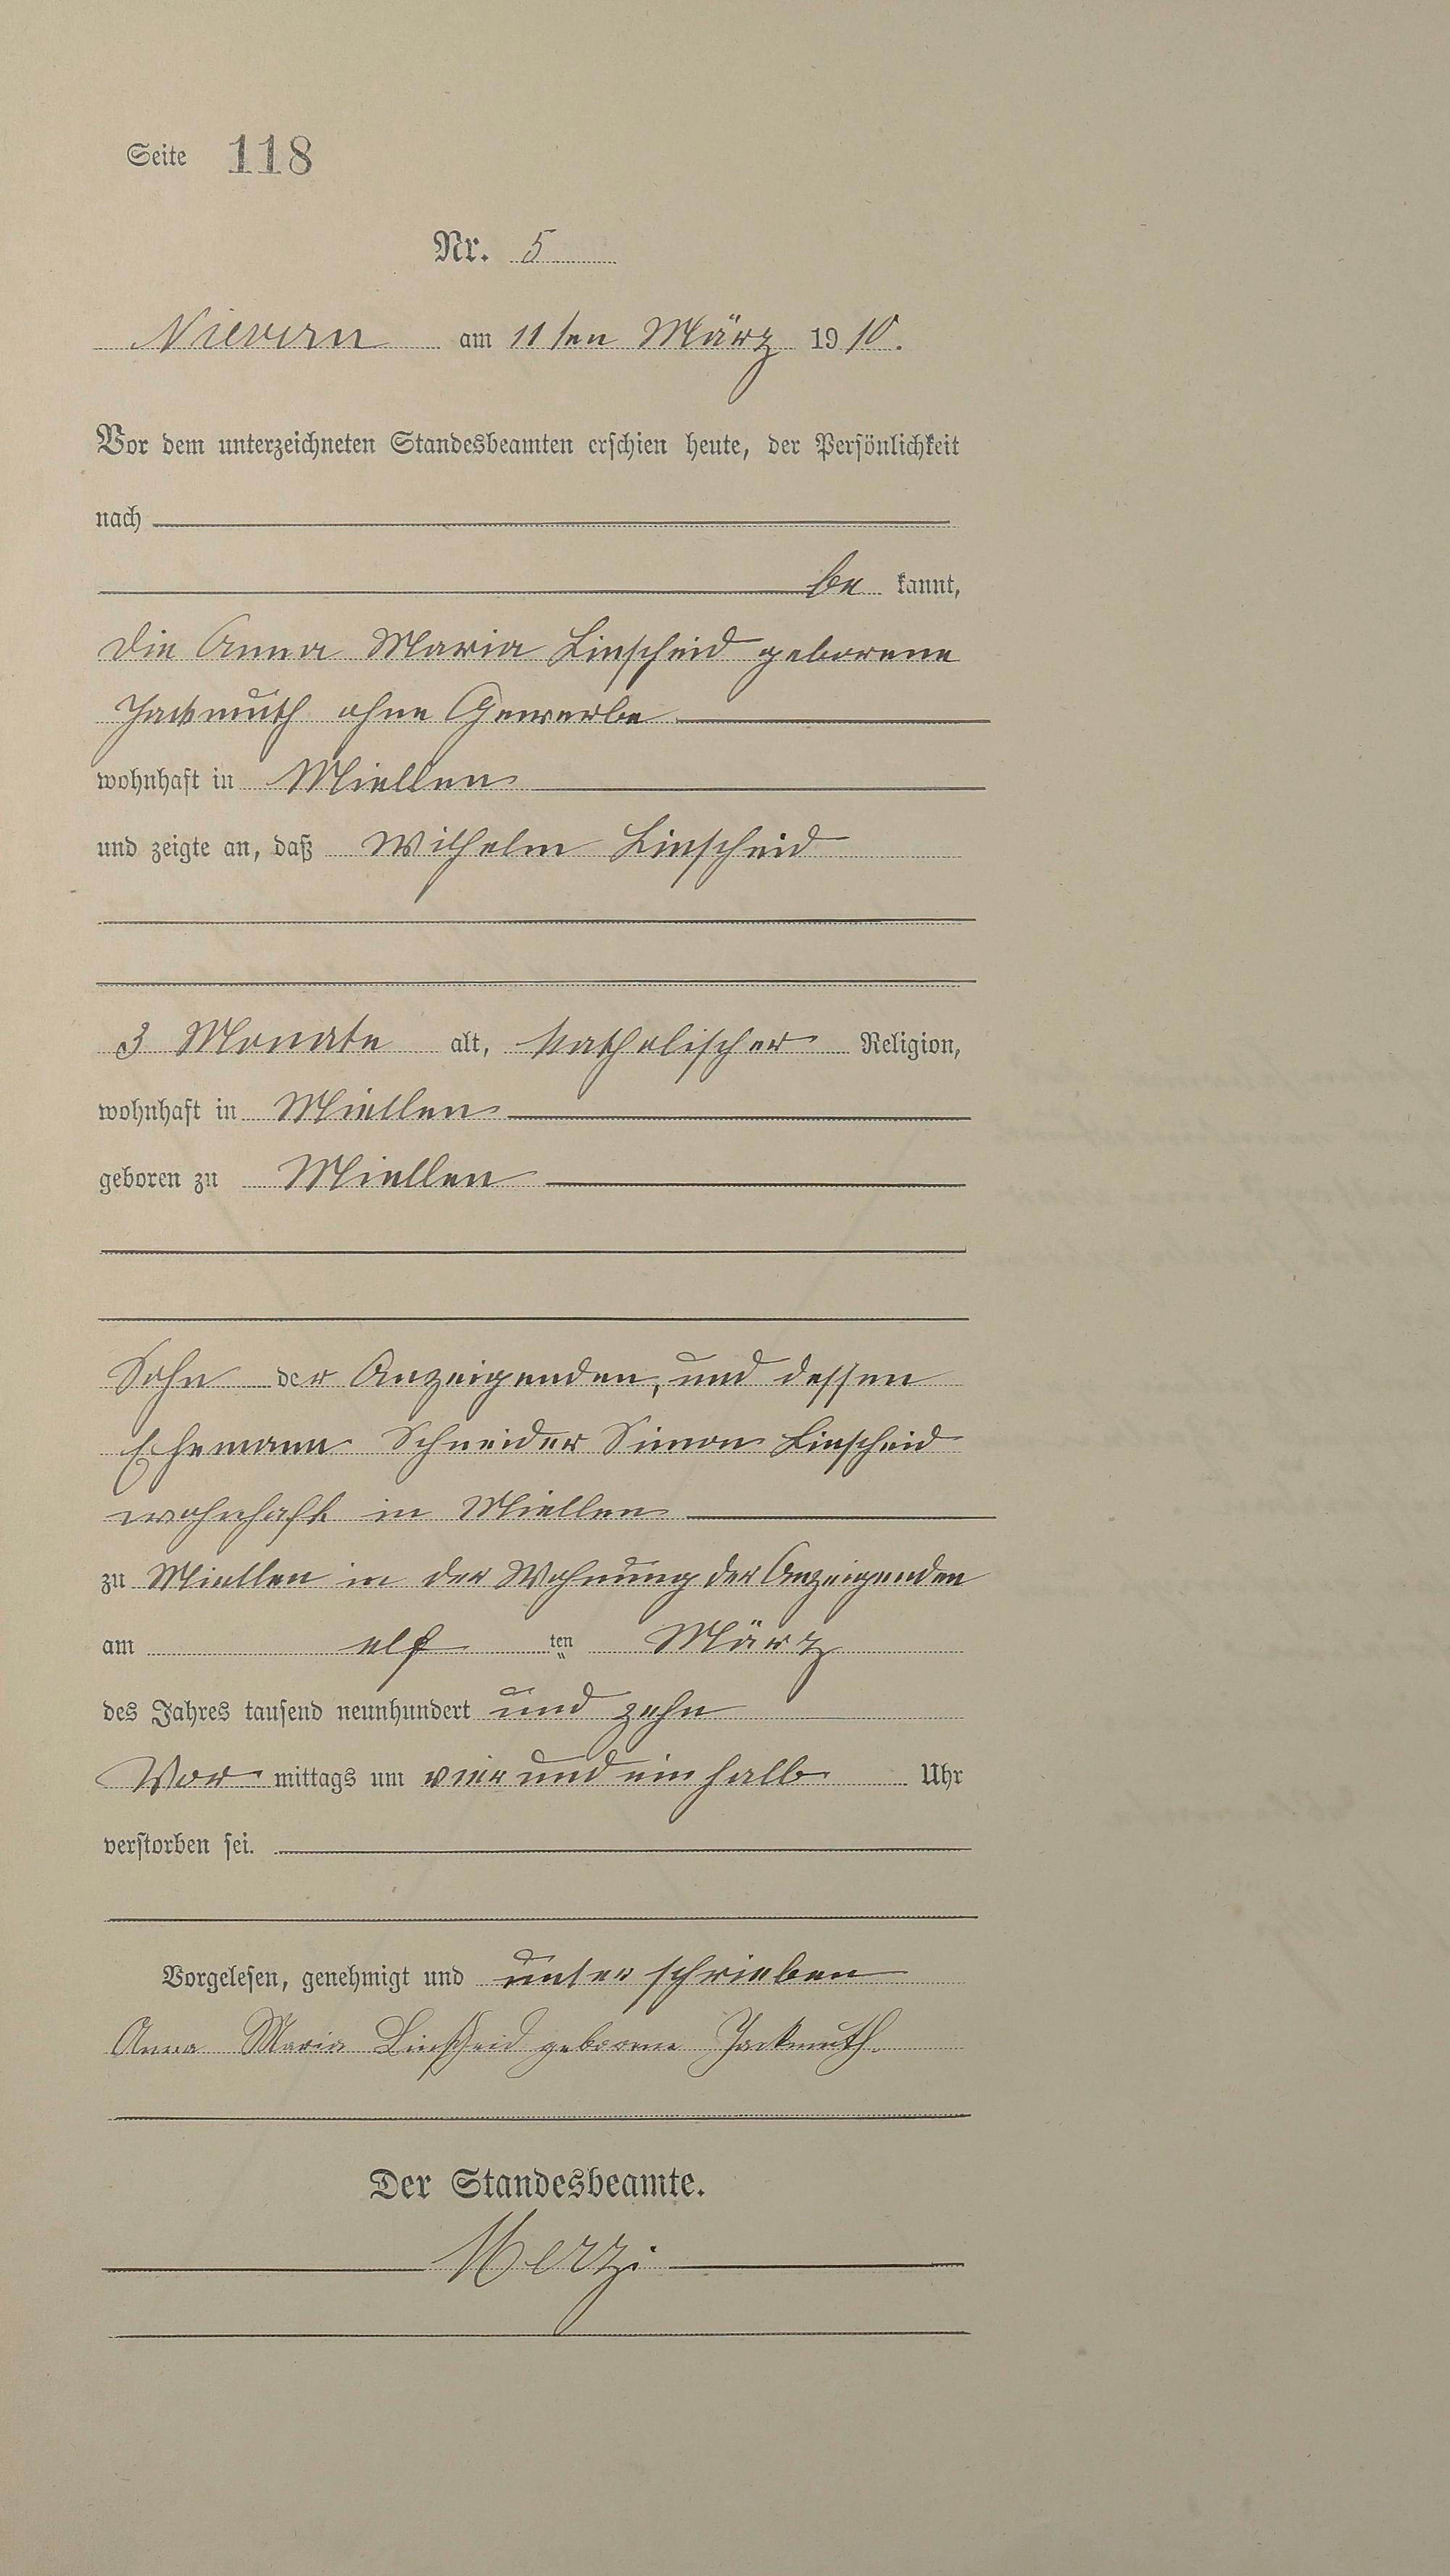 Seite 118
Nr. 5
Nievern am 11ten März 1910.
Vor dem unterzeichneten Standesbeamten erschien heute, der Persönlichkeit
nach
be kannt,
die Anna Maria Linscheid geborene
Jackmuth ohne Gewerbe
wohnhaft in Miellen
und zeigte an, daß Wilhelm Linscheid
3 Monate alt, katholischer Religion,
wohnhaft in Miellen
geboren zu Miellen
Sohn der Anzeigenden, und dessen
Ehemann Schneider Simon Linscheid
wohnhaft in Miellen
zu Miellen in der Wohnung der Anzeigenden
am elf ten März
des Jahres tausend neunhundert und zehn
Vor mittags um vier und ein halb Uhr
verstorben sei.
Vorgelesen, genehmigt und unterschrieben
Anna Maria Linscheid geborene Jackmuth.
Der Standesbeamte.